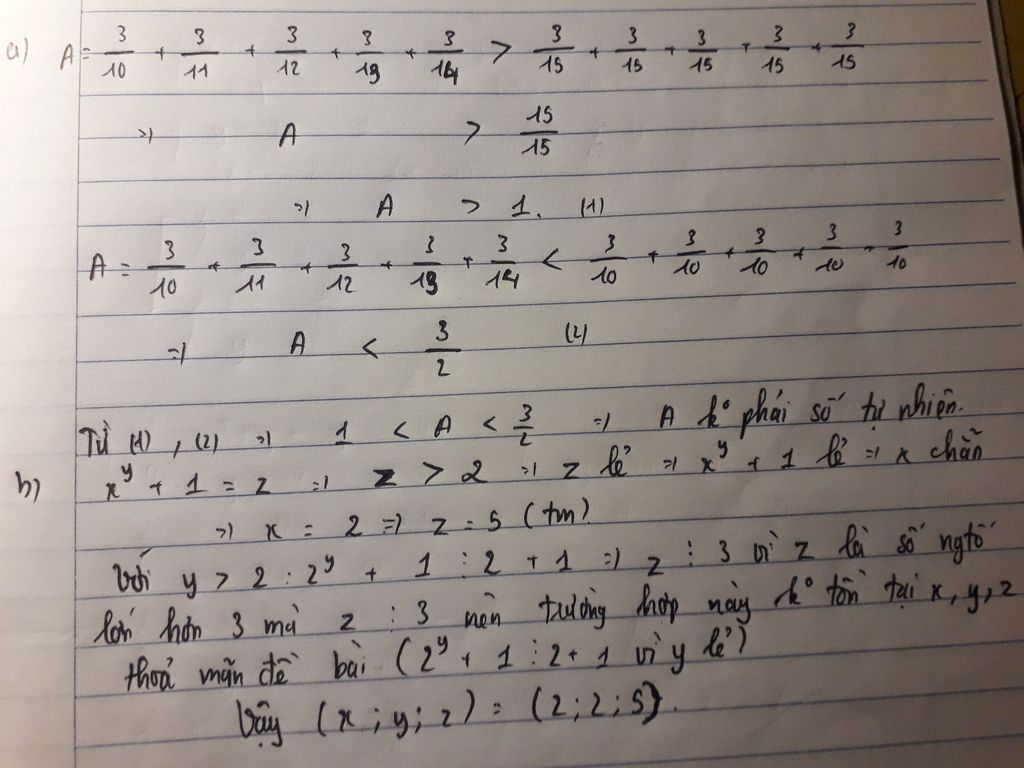 a) A = 3/10 + 3/11 + 3/12 + 3/13 + 3/14 > 3/15 + 3/15 + 3/15 + 3/15 + 3/15
=> A > 15/15
=> A > 1. (1)
A = 3/10 + 3/11 + 3/12 + 3/13 + 3/14 < 3/10 + 3/10 + 3/10 + 3/10 + 3/10
=> A < 3/2 (2)
Từ (1), (2) => 1 < A < 3/2 => A k° phải số tự nhiên.
b) x^y + 1 = z => z > 2 => z lẻ => x^y + 1 lẻ => x chẵn
=> x = 2 => z = 5 (tm)
Với y > 2 : 2^y + 1 ⋮ 2 + 1 => z ⋮ 3 vì z là số ngtố
lớn hơn 3 mà z ⋮ 3 nên trường hợp này k° tồn tại x, y, z
thoả mãn đề bài (2^y + 1 ⋮ 2 + 1 vì y lẻ)
Vậy (x ; y ; z) = (2; 2; 5).